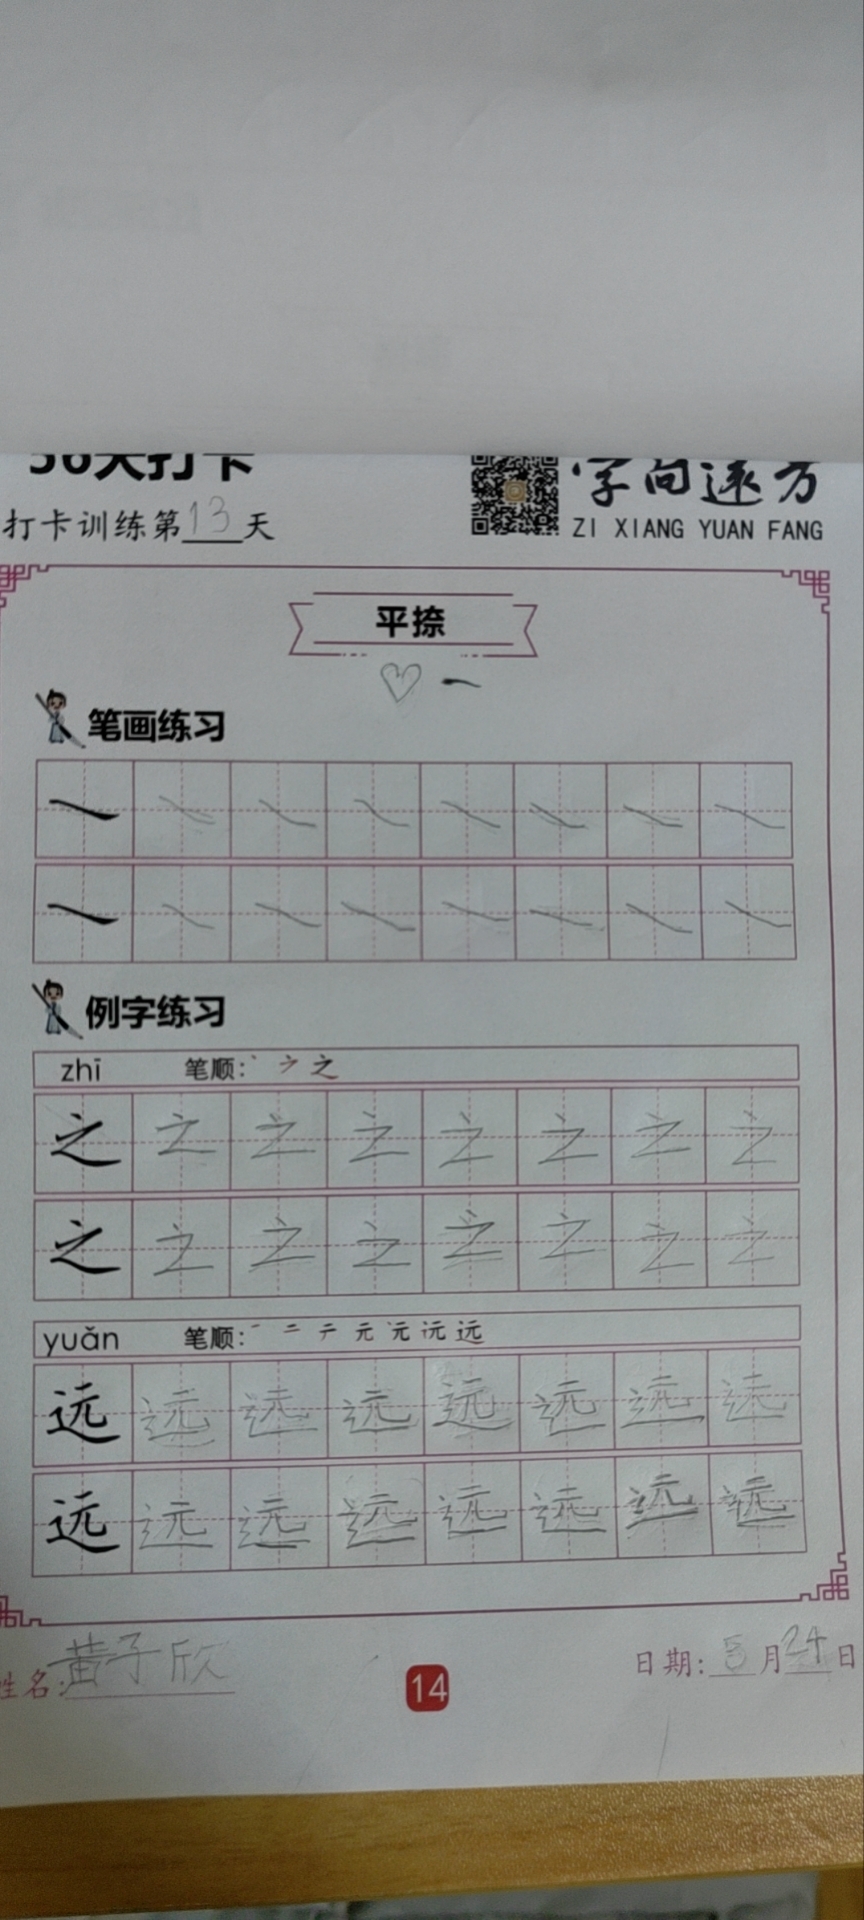 36天打卡
字向远方
打卡训练第13天
ZI XIANG YUAN FANG
平捺
笔画练习
例字练习
zhī 笔顺: 丶 之
之 之 之 之 之 之 之 之
之 之 之 之 之 之 之 之
yuǎn 笔顺: 一 二 テ 元 远
远 远 远 远 远 远 远 远
远 远 远 远 远 远 远 远
姓名: 黄子欣
14
日期: 5月24日